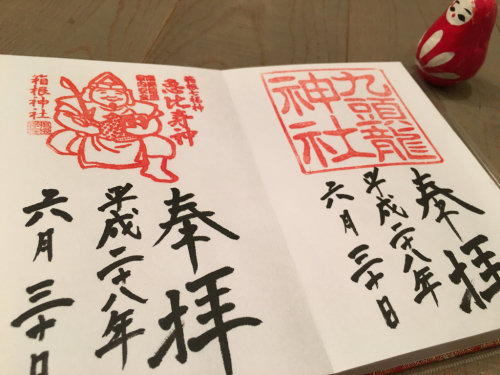 奉拝
平成二十八年
六月三十日
九頭龍
神社
奉拝
恵比寿神
平成二十八年
箱根神社
六月三十日